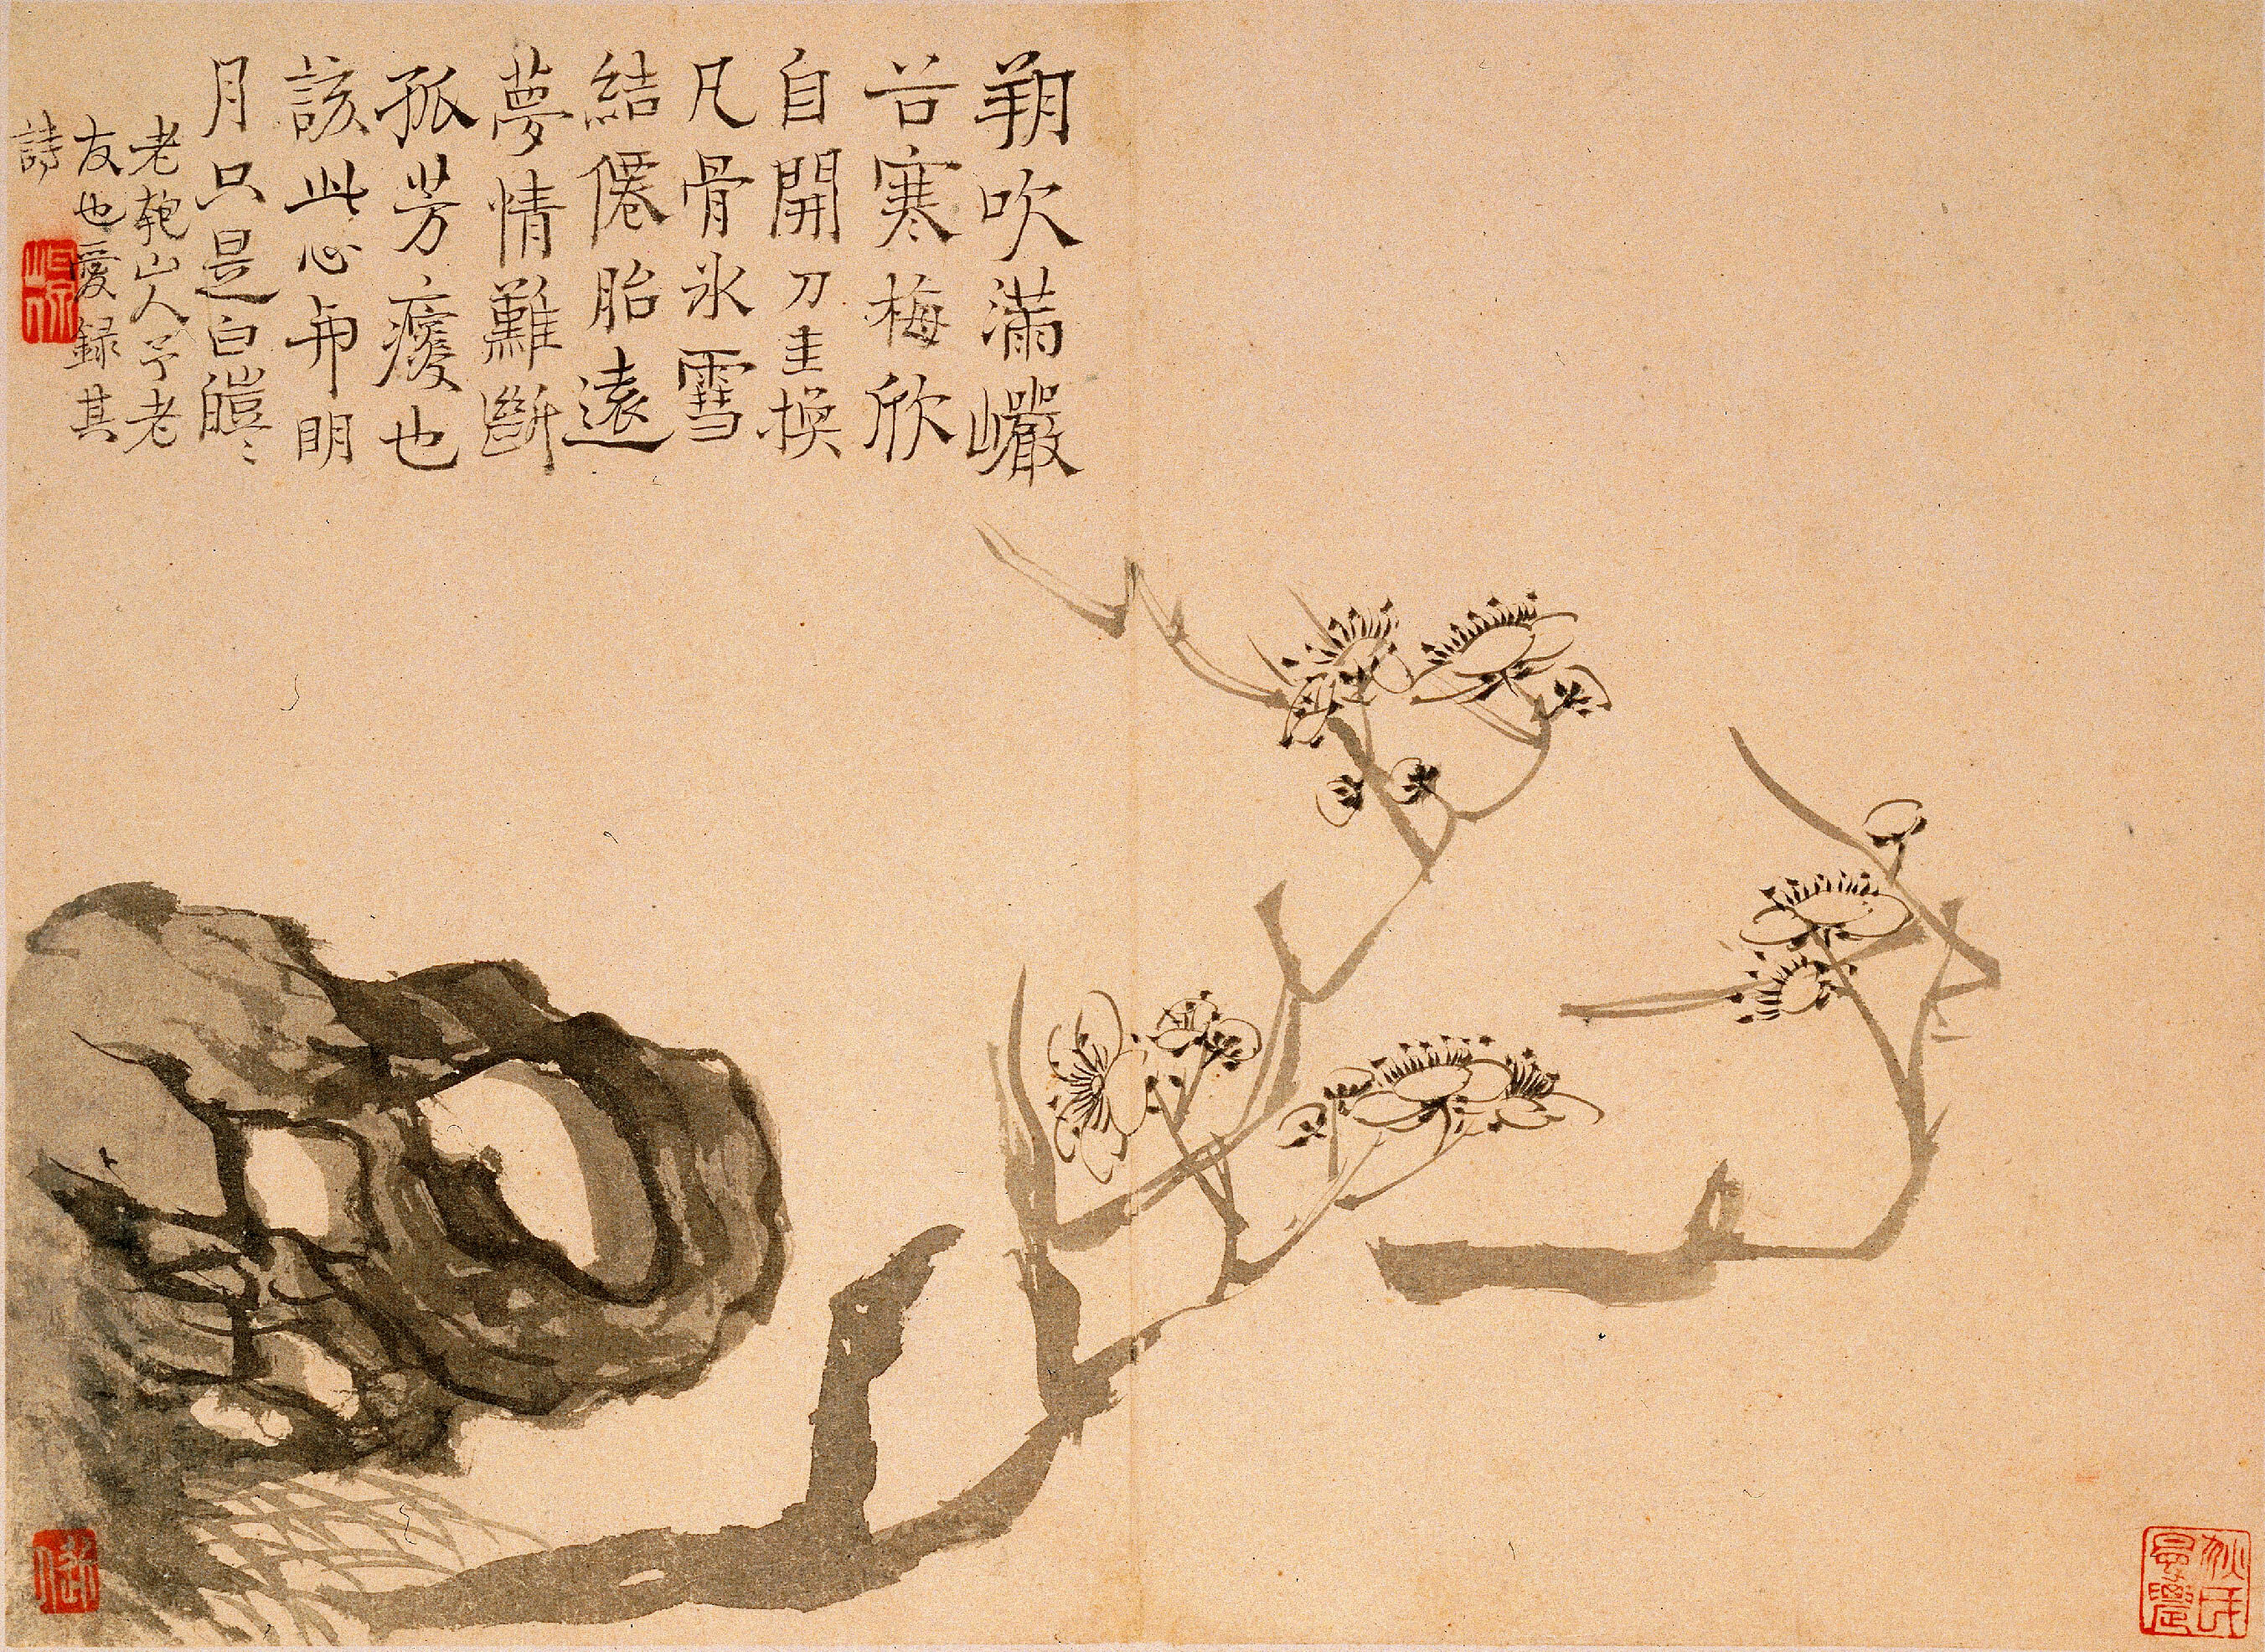 朔吹滿巗
谷寒梅欣
自開刀圭換
凡骨氷雪
結僊胎遠
夢情難斷
孤芳瘦也
該此心弔明
月只是白皚〻
老匏山人予老
友也愛録其
詩